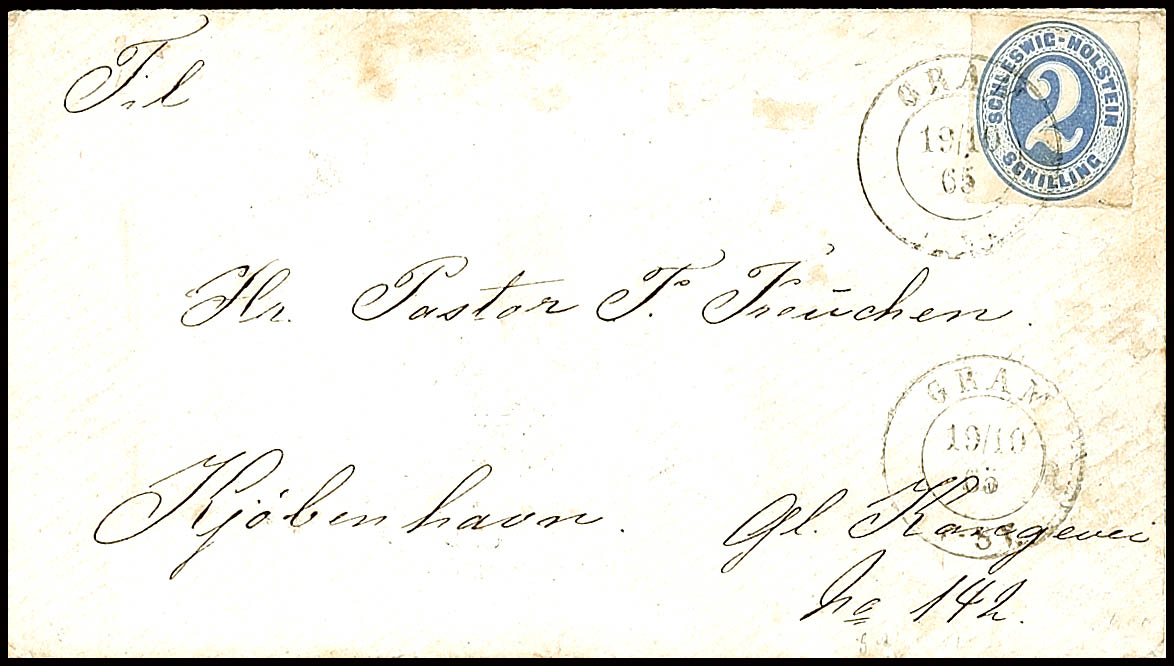 Til
SCHLESWIG-HOLSTEIN
2
SCHILLING
GRAM
19/10
65
Hr. Pastor F. Freuchen.
GRAM
19/10
65
Kjöbenhavn.
Gl. Kongevei
No 142.